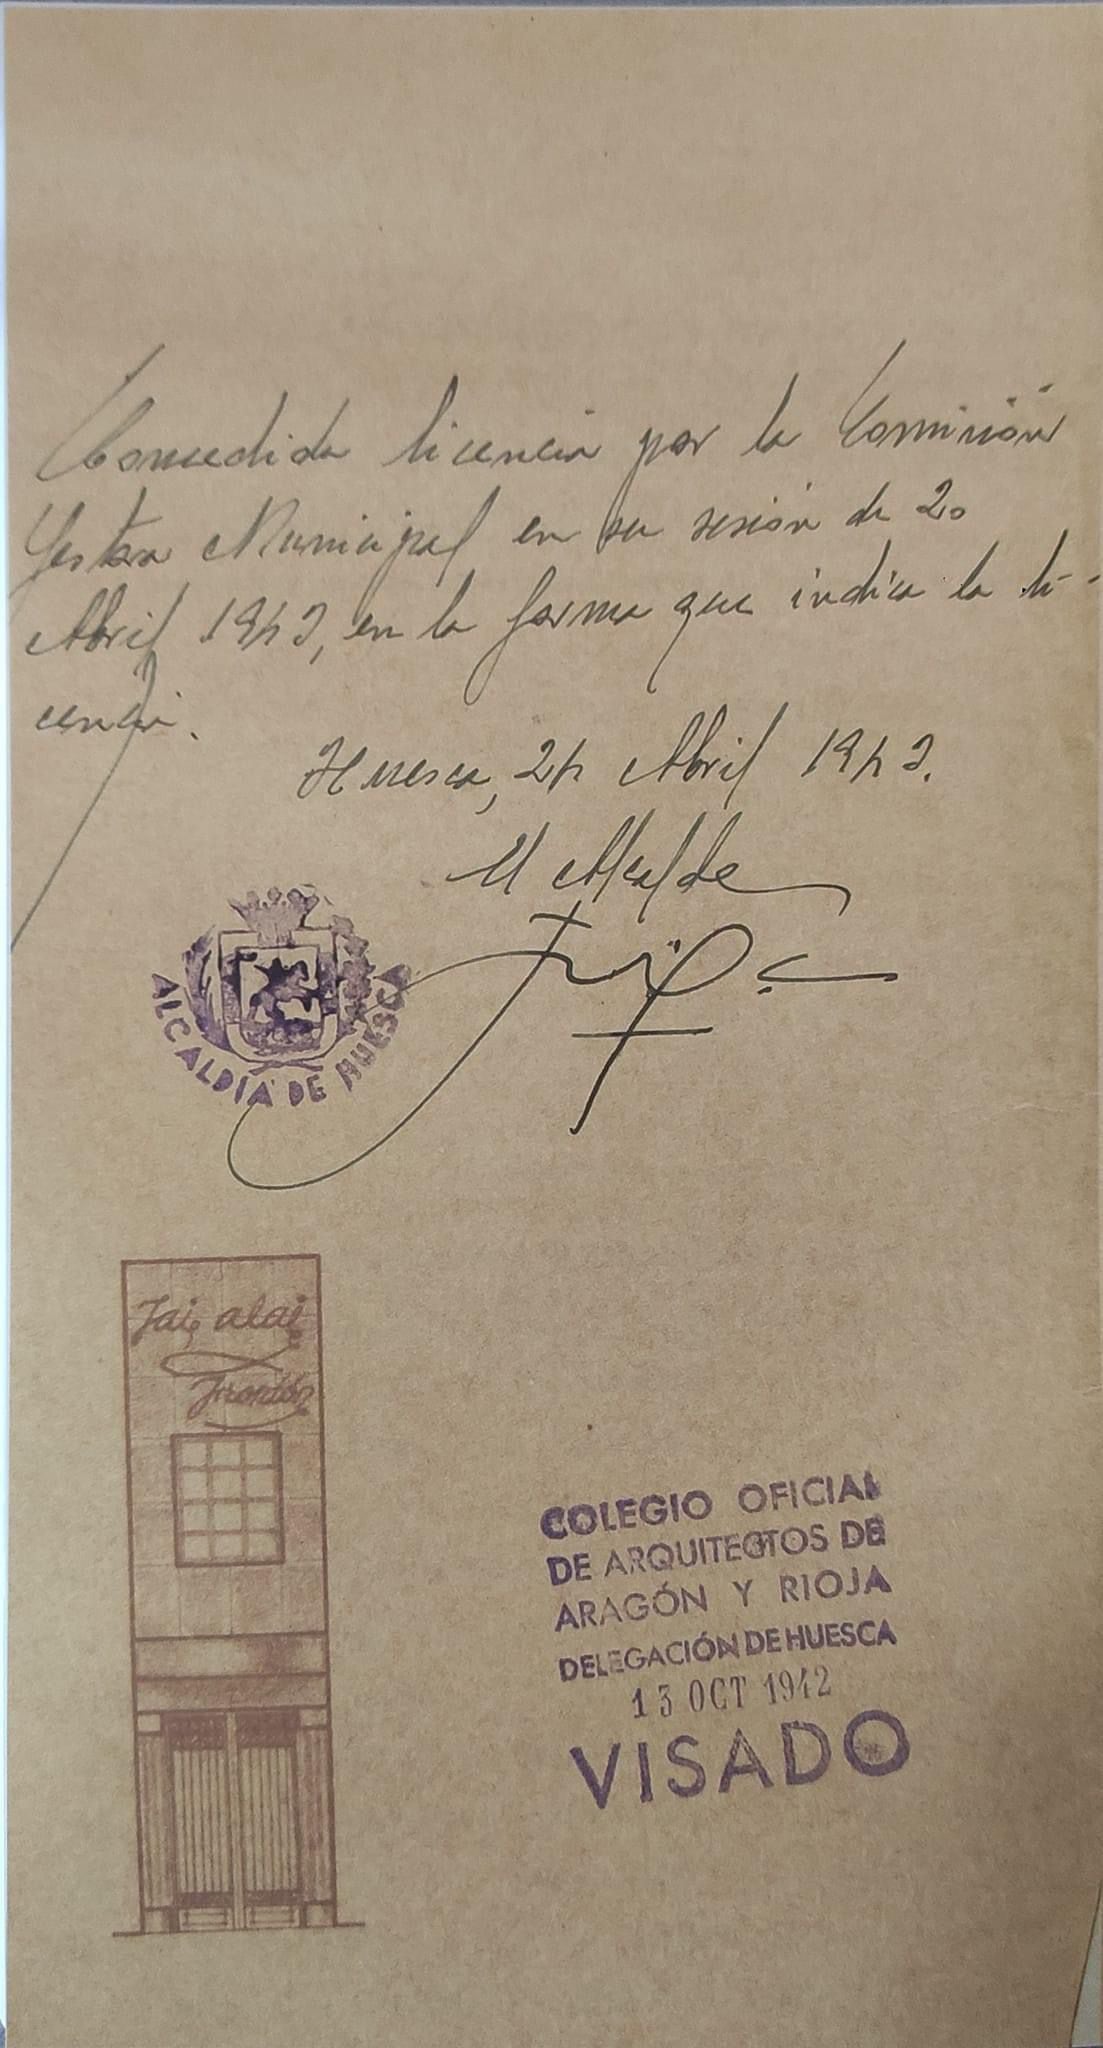 Concedida licencia por la Comisión
Gestora Municipal en su sesión de 20
Abril 1943, en la forma que indica la li-
cencia.
Huesca, 24 Abril 1943.
El Alcalde
ALCALDÍA DE HUESCA
Jai, alai
Frontón
COLEGIO OFICIAL
DE ARQUITECTOS DE
ARAGÓN Y RIOJA
DELEGACIÓN DE HUESCA
13 OCT 1942
VISADO